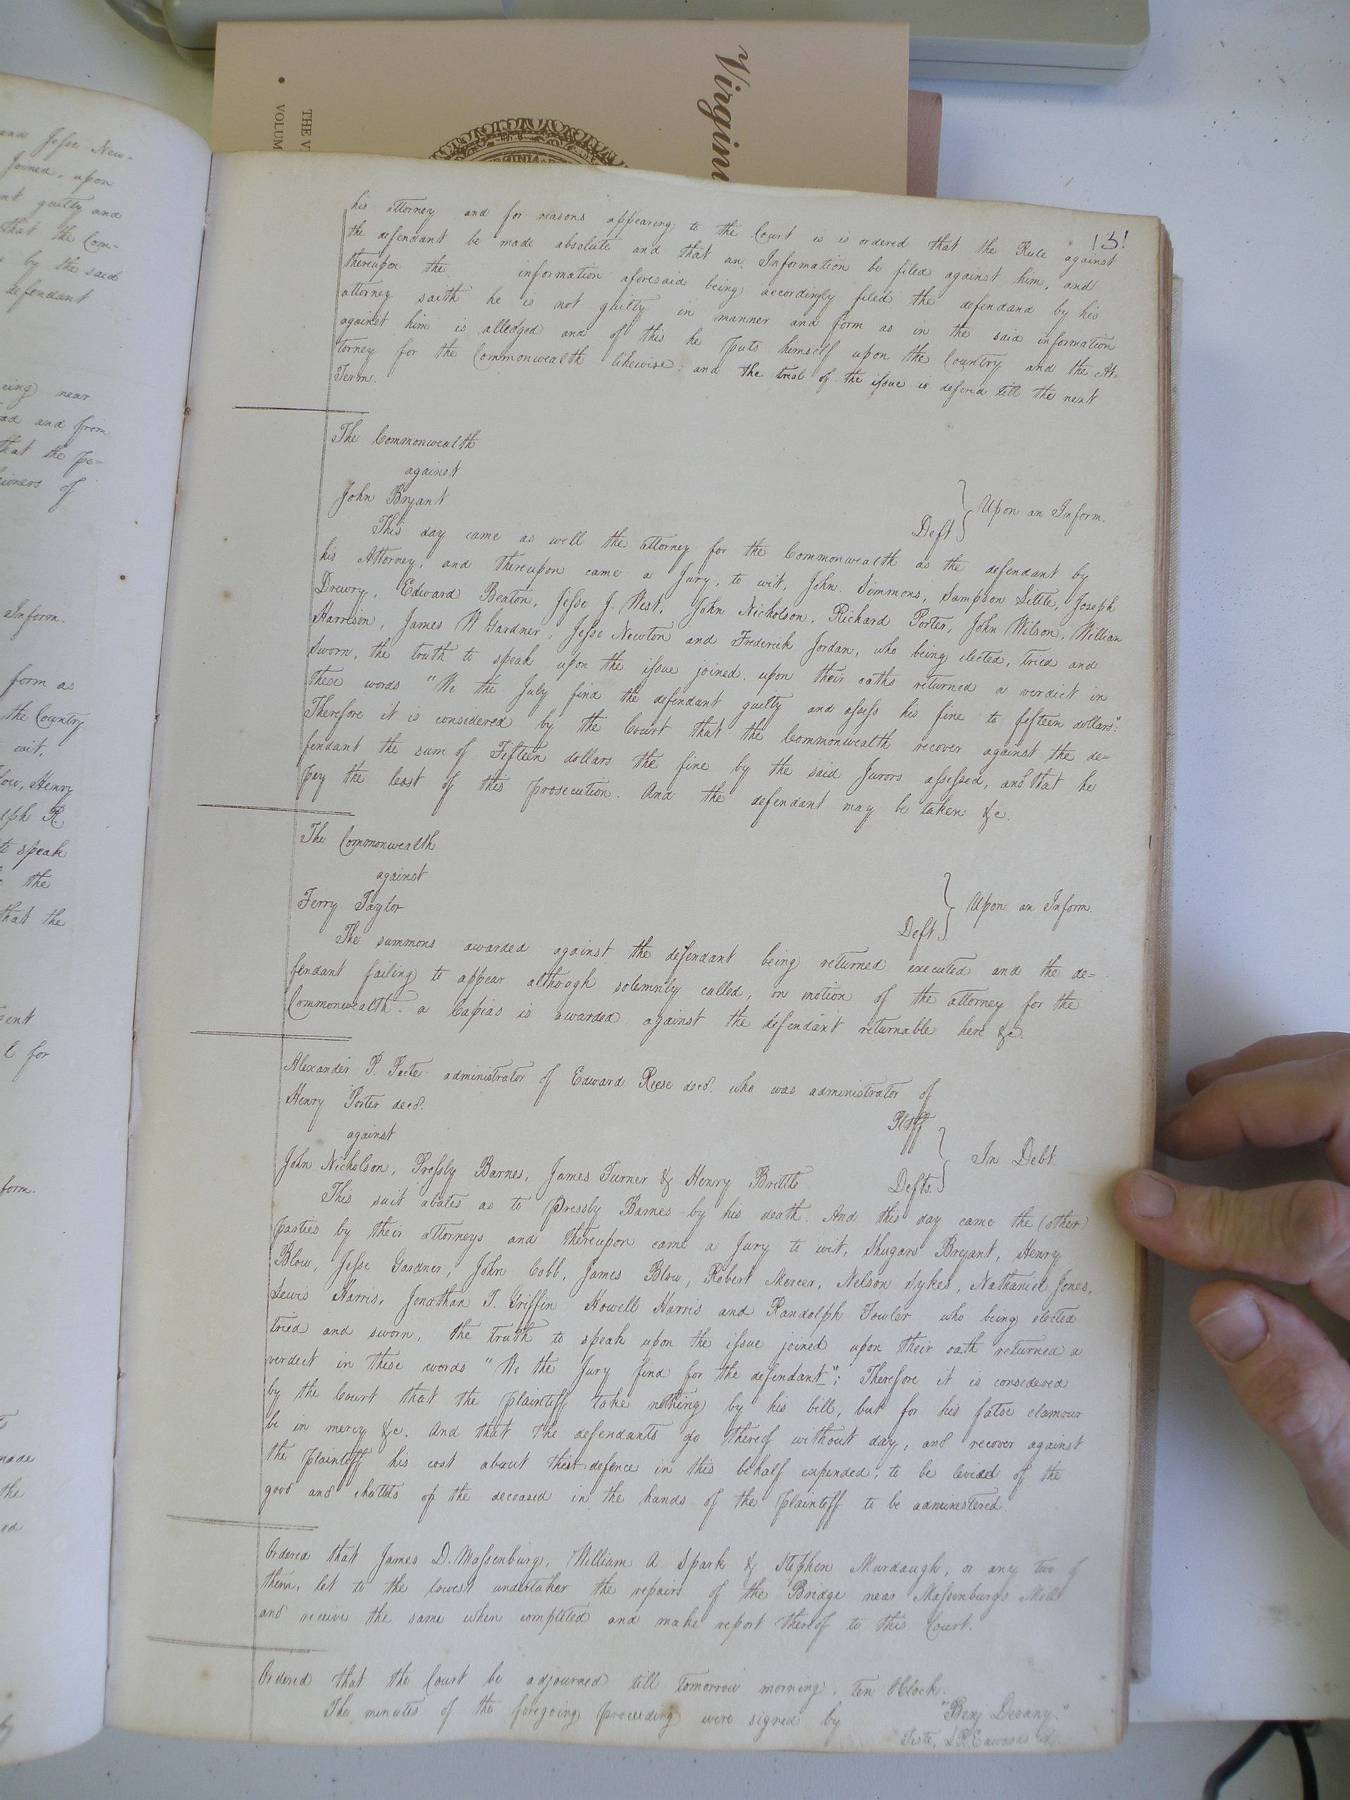 Virgin
THE V
VOLUM
and Jesse New-
Joined, upon
guilty and
that the Com-
by the said
defendant
being near
and from
that the pe-
Inform.
form as
the Country
wit,
Henry
R
speak
the
that the
for
form.
made
the
131
his attorney and for reasons appearing to the Court it is ordered that the Rule against
the defendant be made absolute and that an Information be filed against him, and
thereupon the information aforesaid being accordingly filed the defendand by his
attorney saith he is not guilty in manner and form as in the said information
against him is alledged and of this he puts himself upon the Country and the At-
torney for the Commonwealth likewise: and the trial of the issue is defered till the next
Term.
The Commonwealth
against
John Bryant Deft } Upon an Inform.
This day came as well the attorney for the Commonwealth as the defendant by
his Attorney, and thereupon came a Jury, to wit, John Simmons, Sampson Settle, Joseph
Drewry, Edward Beaton, Jesse J. West, John Nicholson, Richard Porter, John Wilson, William
Harrison, James W Gardner, Jesse Newton and Frederick Jordan, who being elected, tried and
sworn, the truth to speak upon the issue joined, upon their oaths returned a verdict in
these words "We the July find the defendant guilty and assess his fine to fifteen dollars":
Therefore it is considered by the Court that the Commonwealth recover against the de=
fendant the sum of Fifteen dollars the fine by the said Jurors assessed, and that he
pay the cost of this prosecution. And the defendant may be taken &c.
The Commonwealth
against
Ferry Taylor Deft } Upon an Inform.
The summons awarded against the defendant being returned executed and the de=
fendant failing to appear although solemnly called, on motion of the attorney for the
Commonwealth a Capias is awarded against the defendant returnable here &c.
Alexander P. administrator of Edward Reese decd. who was administrator of
Henry Porter decd. Pltff
against } In Debt
John Nicholson, Pressly Barnes, James Turner & Henry Brittle Defts.
This suit abates as to Pressly Barnes by his death. And this day came the (other)
parties by their attorneys and thereupon came a Jury to wit, Shugars Bryant, Henry
Blow, Jesse Gardner, John Cobb, James Blow, Robert Mercer, Nelson Sykes, Nathaniel Jones,
Lewis Harris, Jonathan T. Griffin Howell Harris and Randolph Fowler who being elected
tried and sworn, the truth to speak upon the issue joined upon their oath returned a
verdict in these words "We the Jury find for the defendant"; Therefore it is considered
by the Court that the plaintiff take nothing by his bill, but for his false clamour
be in mercy &c. And that the defendants go thereof without day, and recover against
the plaintiff his cost about their defence in this behalf expended; to be levied of the
good and chattels of the deceased in the hands of the plaintiff to be administered.
Ordered that James D. Massenburg, William A Spark & Stephen Murdaugh, or any two of
them, let to the lowest undertaker the repairs of the Bridge near Massenburgs Mill
and receive the same when completed and make report thereof to this Court.
Ordered that the Court be adjourned till tomorrow morning, ten OClock.
The minutes of the foregoing proceeding were signed by "Benj Devany."
Teste, Edwards